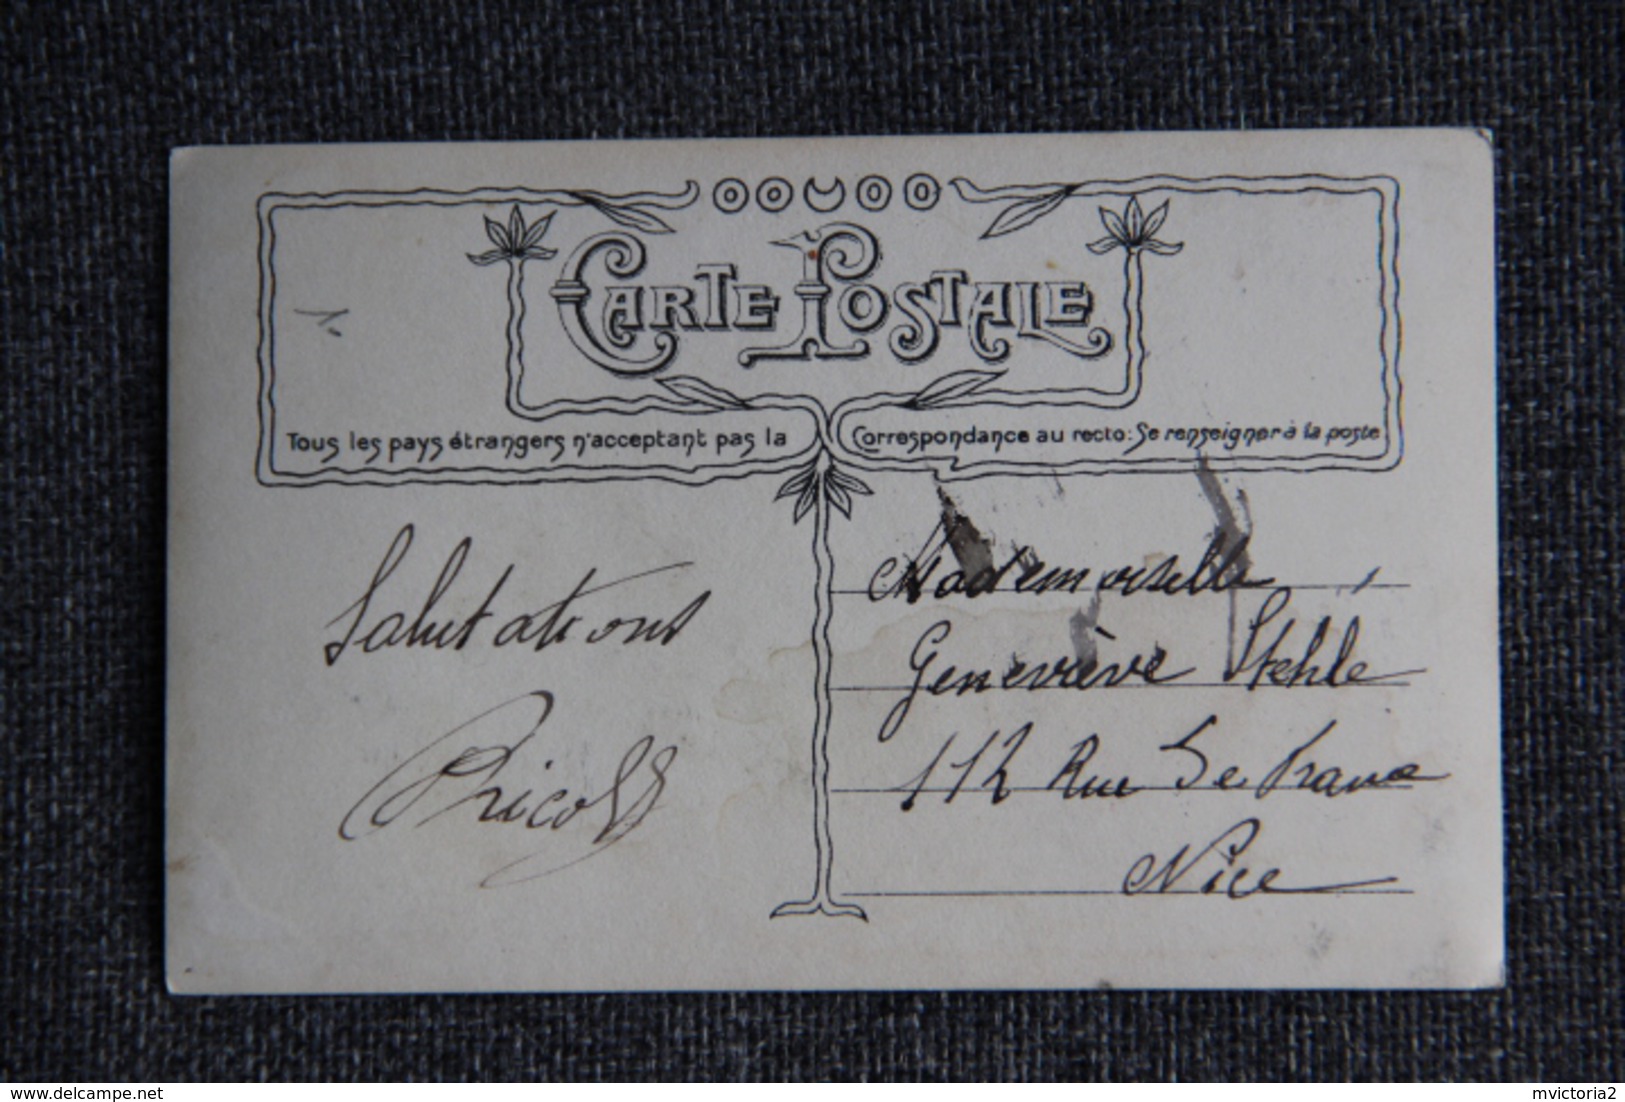 CARTE POSTALE
Tous les pays étrangers n'acceptant pas la Correspondance au recto: Se renseigner à la poste
1.
Salutations
Mademoiselle
Geneviève Stehle
112 Rue De France
Nice
delcampe.net
mvictoria2